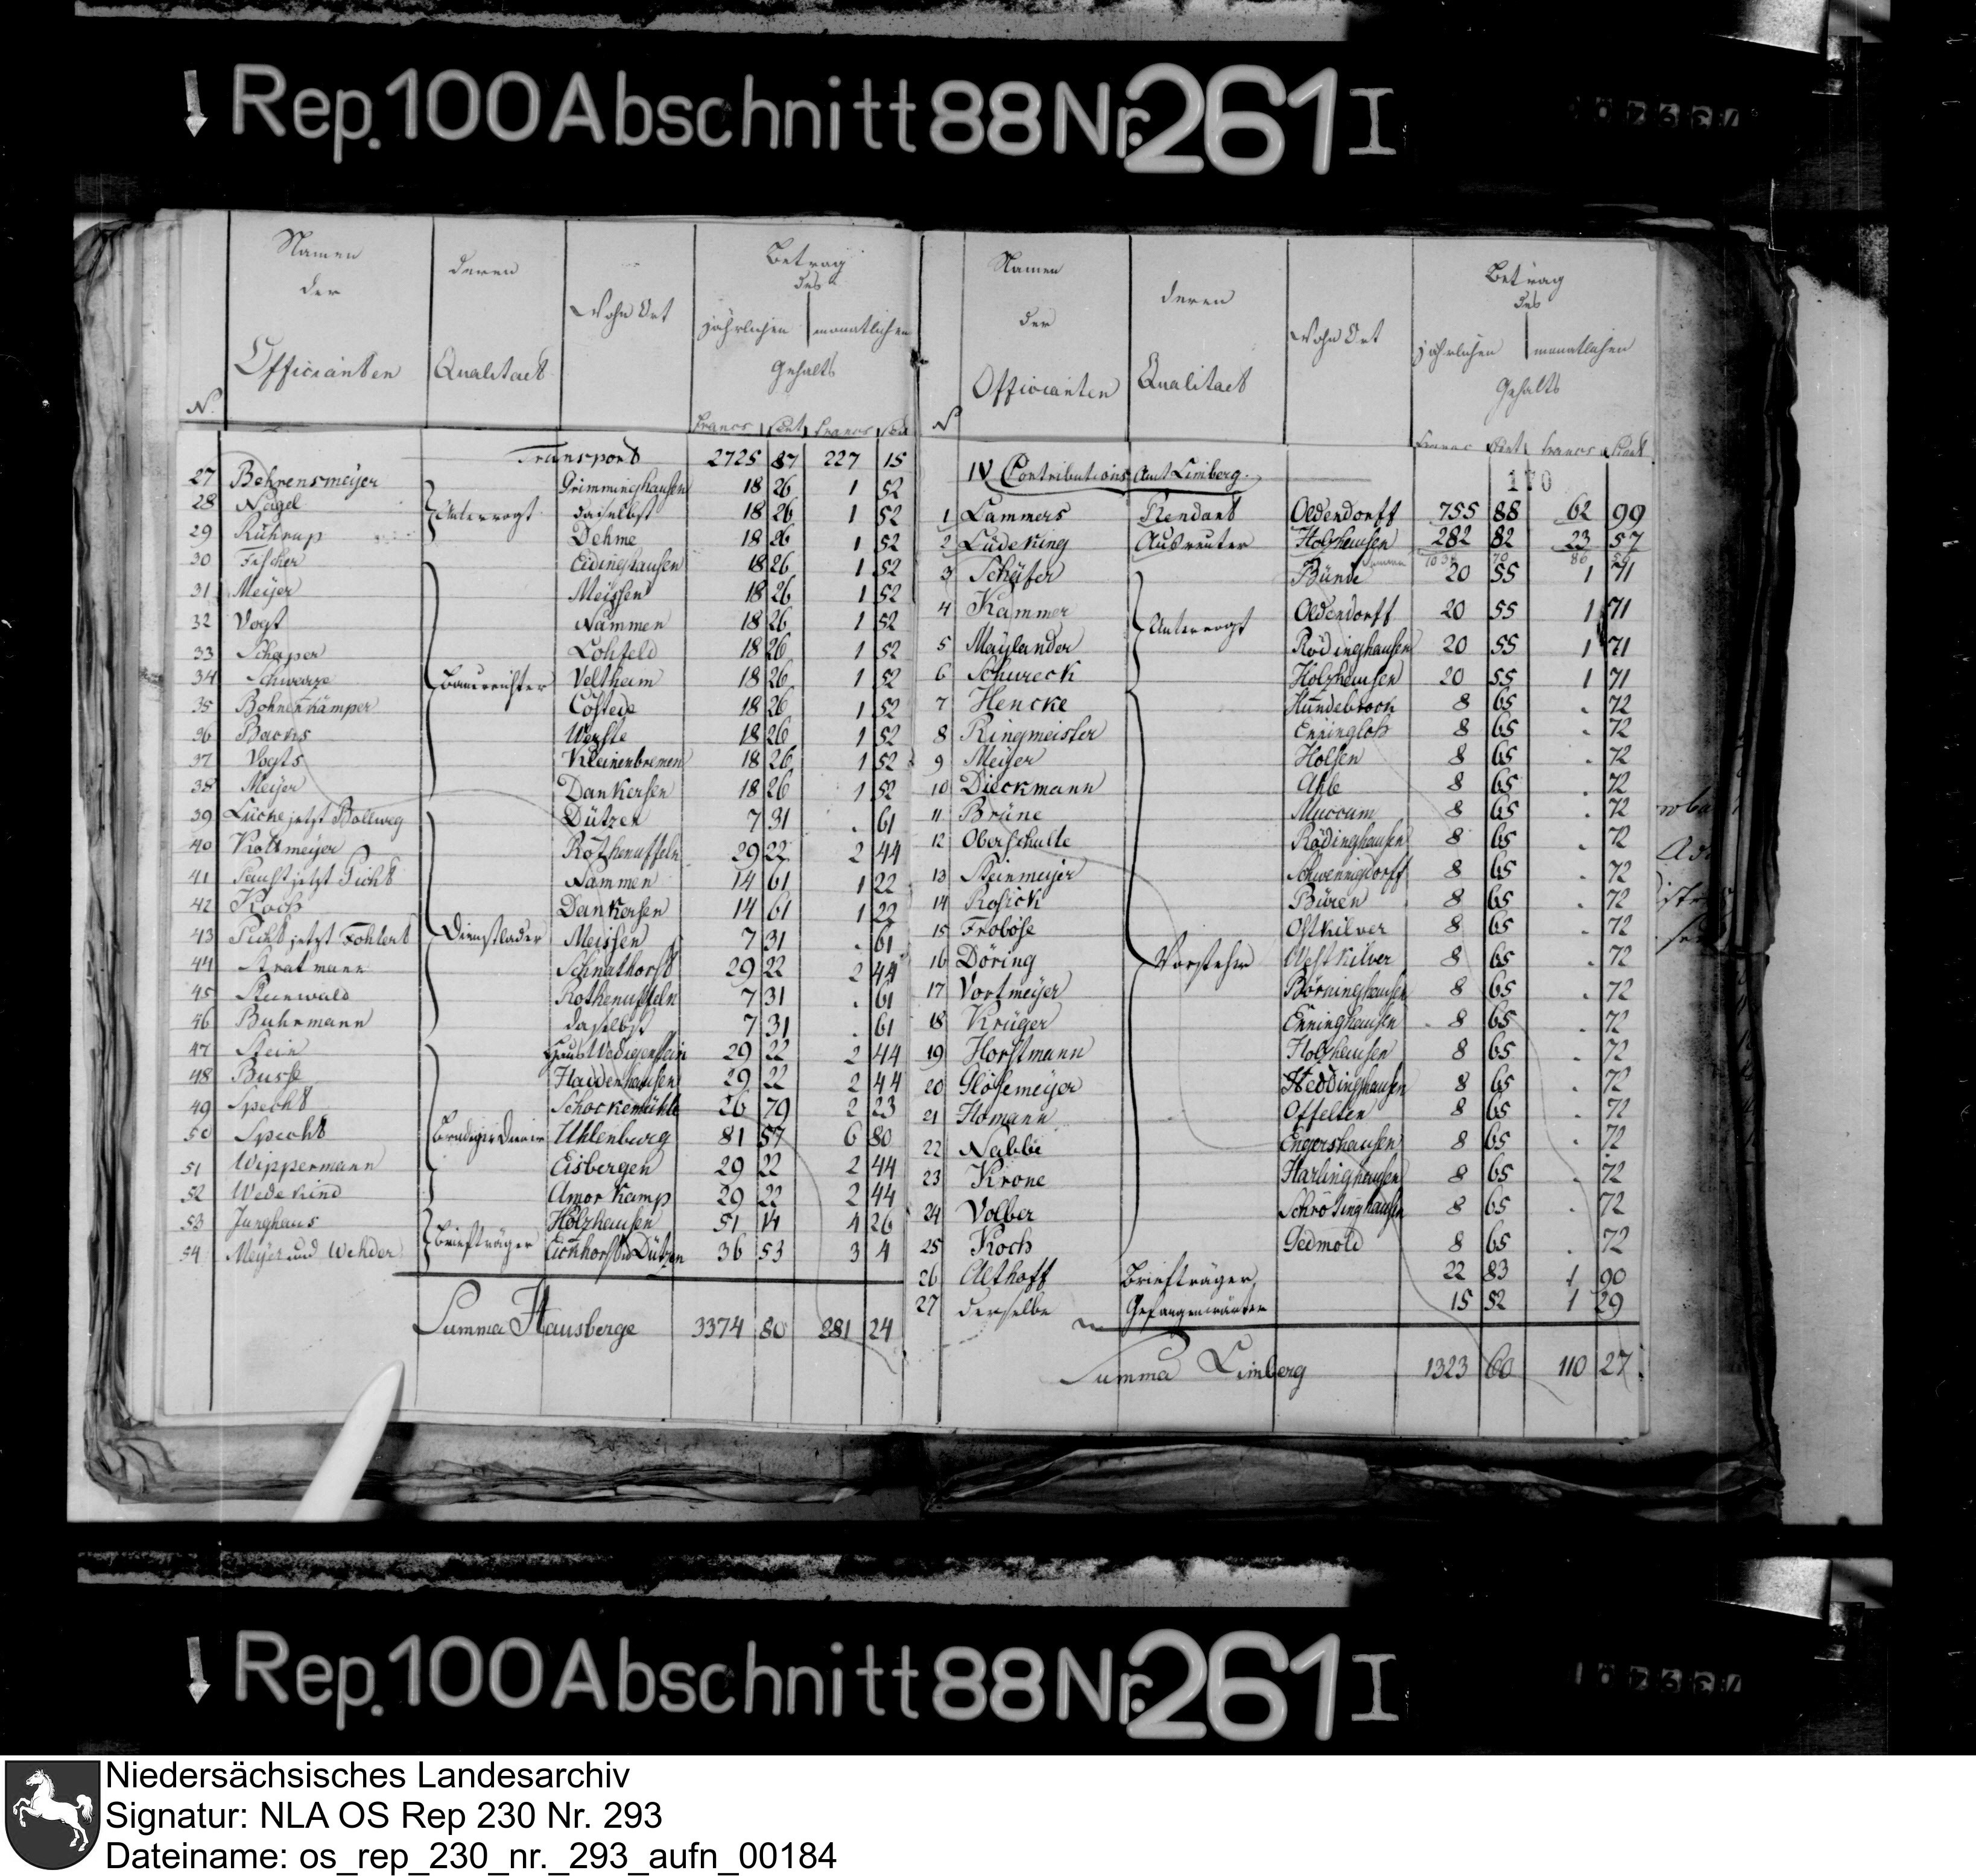 Rep. 100 Abschnitt 88 Nr. 261 I
Namen der Officianten
deren Qualitaet
Wohn Ort
Betrag des
jährlichen monatlichen
Gehalts
N.
Francs Cent Francs Cent
Transport 2725 87 227 15
27 Behrensmeyer Grimminghausen 18 26 1 52
28 Nagel Untervogt daselbst 18 26 1 52
29 Dehme 18 26 1 52
30 Fischer Eidinghausen 18 26 1 52
31 Meijer Meissen 18 26 1 52
32 Vogt Nammen 18 26 1 52
33 Schaper Lohfeld 18 26 1 52
34 Schwarze Bauerrichter Veltheim 18 26 1 52
35 Bohnenkämper Costede 18 26 1 52
36 Backs Werste 18 26 1 52
37 Vogts Kleinenbremen 18 26 1 52
38 Meijer Dankersen 18 26 1 52
39 Lücke jetzt Bollweg Dützen 7 31 . 61
40 Kottmeyer Rothenuffeln 29 22 2 44
41 jetzt Nammen 14 61 1 22
42 Koch Dankersen 14 61 1 22
43 jetzt Fohlert Dienstlader Meissen 7 31 . 61
44 Stratmann Schnathorst 29 22 2 44
45 Rothenuffeln 7 31 . 61
46 Buhrmann daselbst 7 31 . 61
47 Stein Haus Wedigenstein 29 22 2 44
48 Busse Haddenhausen 29 22 2 44
49 Specht Schockemühle 26 79 2 23
50 Specht Uhlenburg 81 57 6 80
51 Wippermann Eisbergen 29 22 2 44
52 Wedekind Amorkamp 29 22 2 44
53 Junghans Holzhausen 51 14 4 26
54 Meijer und Wehder Briefträger Eickhorst u Dützen 36 53 3 4
Summa Hausberge 3374 80 281 24
Namen der Officianten
deren Qualitaet
Wohn Ort
Betrag des
jährlichen monatlichen
Gehalts
N
Francs Cent Francs Cent
170
IV Contributions Amt Limberg.
1 Lammers Rendant Oldendorff 755 88 62 99
2 Lüdeking Ausreuter Holzhausen 282 82 23 57
3 Schäfer Bünde 20 55 1 71
4 Kammer Untervogt Oldendorff 20 55 1 71
5 Maylander Rödinghausen 20 55 1 71
6 Schureck Holzhausen 20 55 1 71
7 Hencke Hundebrock 8 65 . 72
8 Ringmeister Ennigloh 8 65 . 72
9 Meijer Holsen 8 65 . 72
10 Dieckmann Ahle 8 65 . 72
11 Brüne Muccum 8 65 . 72
12 Oberschulte Rödinghausen 8 65 . 72
13 Steinmeijer Schwenningdorff 8 65 . 72
14 Rosick Büren 8 65 . 72
15 Froböse Ostkilver 8 65 . 72
16 Döring Vorsteher Westkilver 8 65 . 72
17 Vortmeijer Börninghausen 8 65 . 72
18 Krüger Enninghausen 8 65 . 72
19 Horstmann Holzhausen 8 65 . 72
20 Glösemeyer Heddinghausen 8 65 . 72
21 Homann Offelten 8 65 . 72
22 Nabbe Engershausen 8 65 . 72
23 Krone Harlinghausen 8 65 . 72
24 Volber Schröttinghausen 8 65 . 72
25 Koch Gedmold 8 65 . 72
26 Althoff Briefträger 22 83 1 90
27 derselbe Gefangenwärter 15 52 1 29
Summa Limberg 1323 60 110 27
Rep. 100 Abschnitt 88 Nr. 261 I
Niedersächsisches Landesarchiv
Signatur: NLA OS Rep 230 Nr. 293
Dateiname: os_rep_230_nr._293_aufn_00184